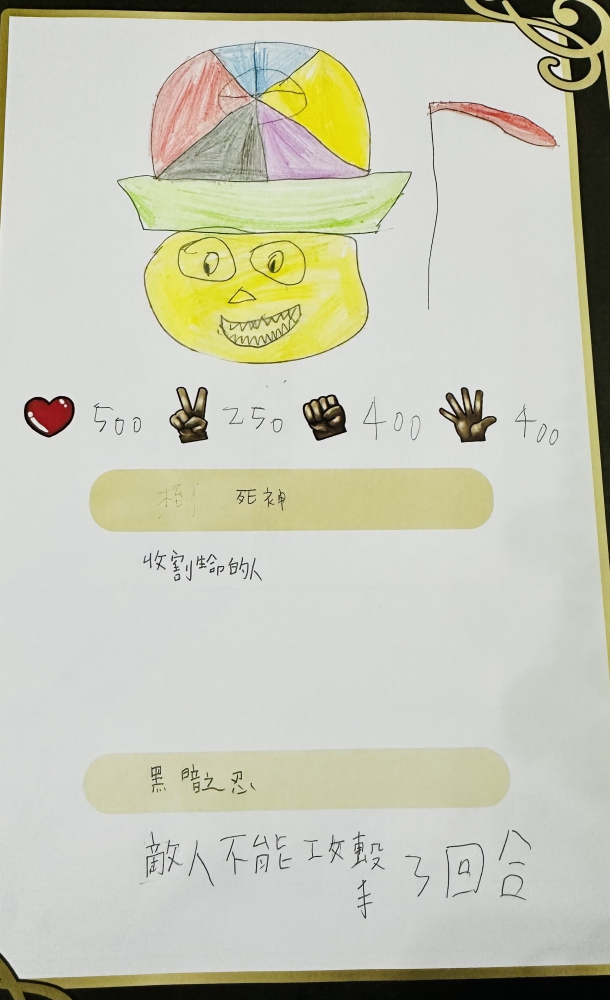 500 250 400 400
死神
收割生命的人
黑暗之忍
敵人不能攻擊3回合